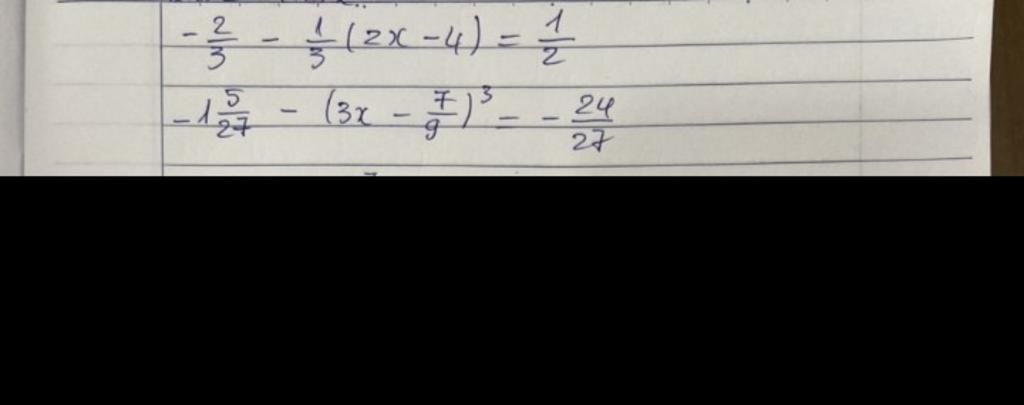 -2/3 - 1/3(2x-4) = 1/2
-1 5/27 - (3x - 7/9)³ = -24/27